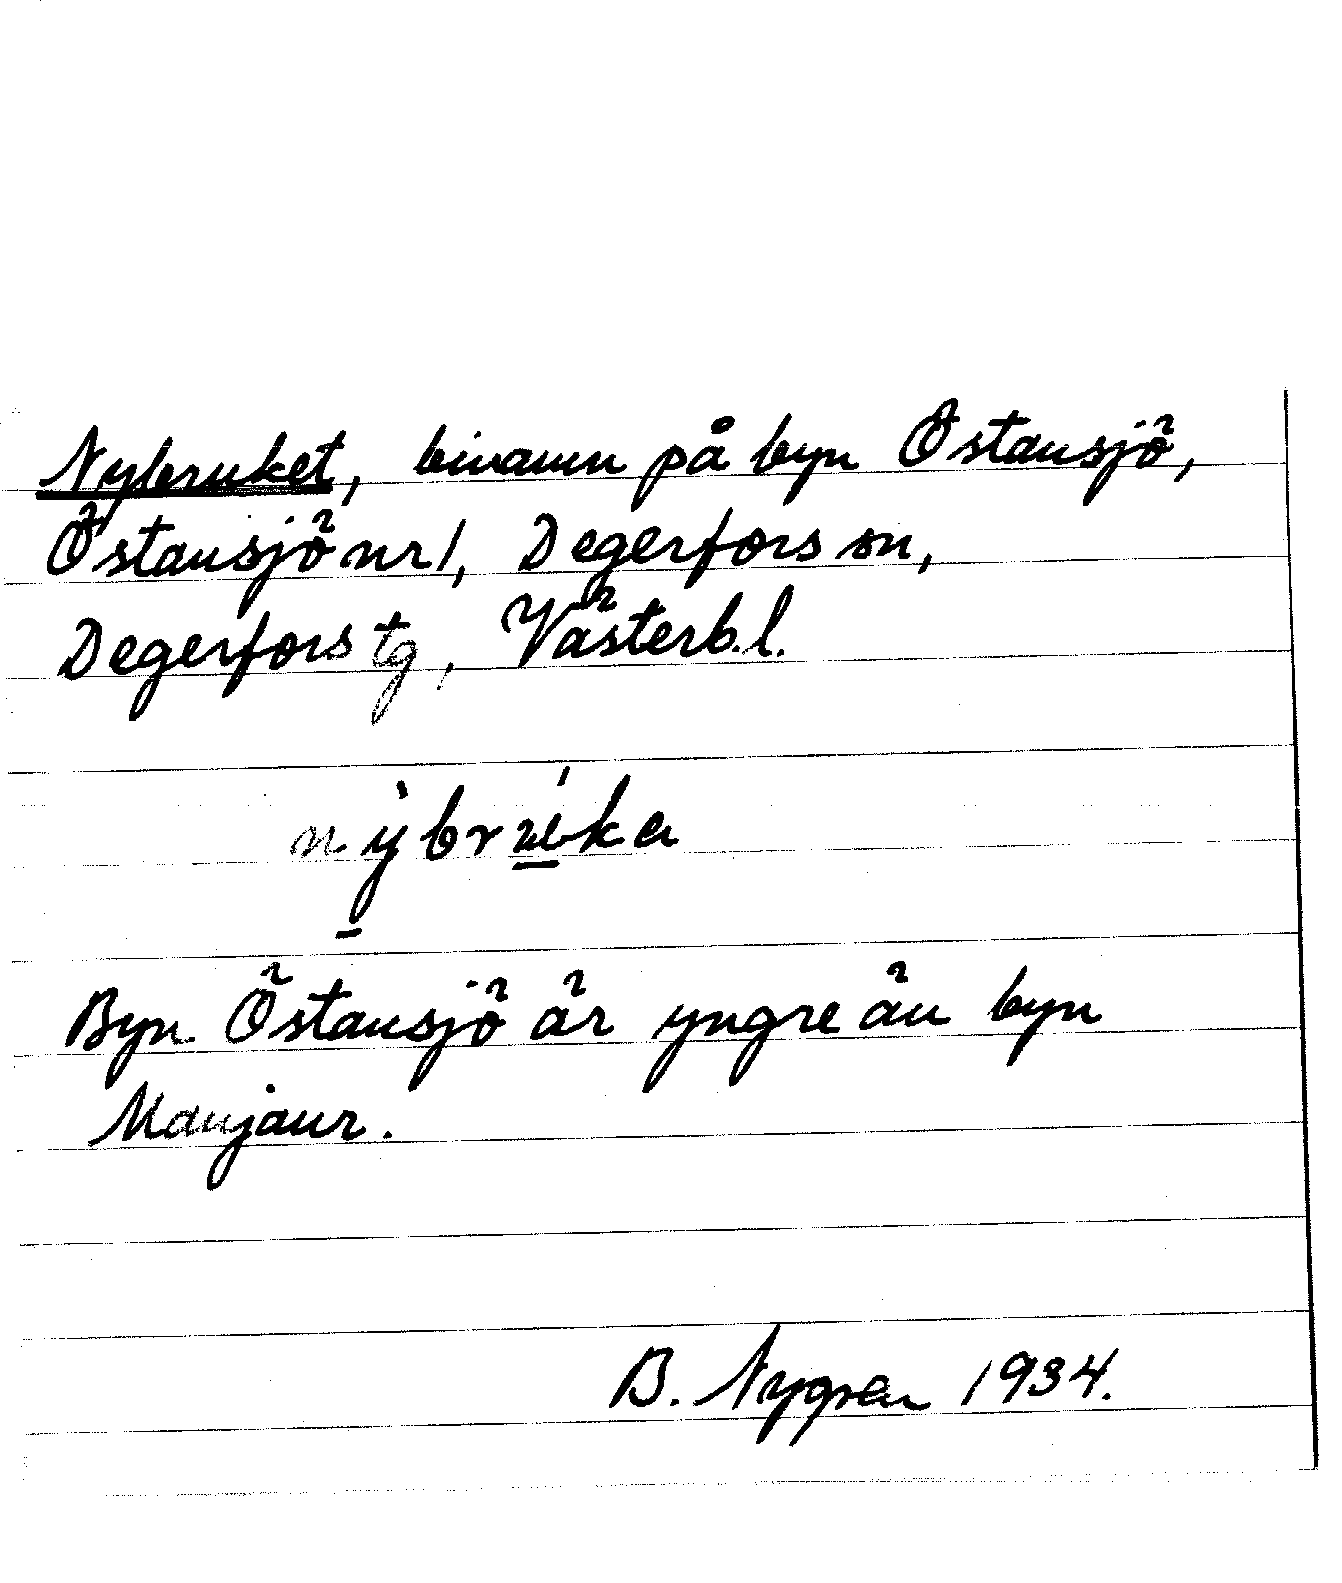 Nybruket, binamn på byn Östansjö,
Östansjö nr 1, Degerfors sn,
Degerfors tg, Västerb.l.
Byn Östansjö är yngre än byn
Manjaur.
B. Nygren 1934.